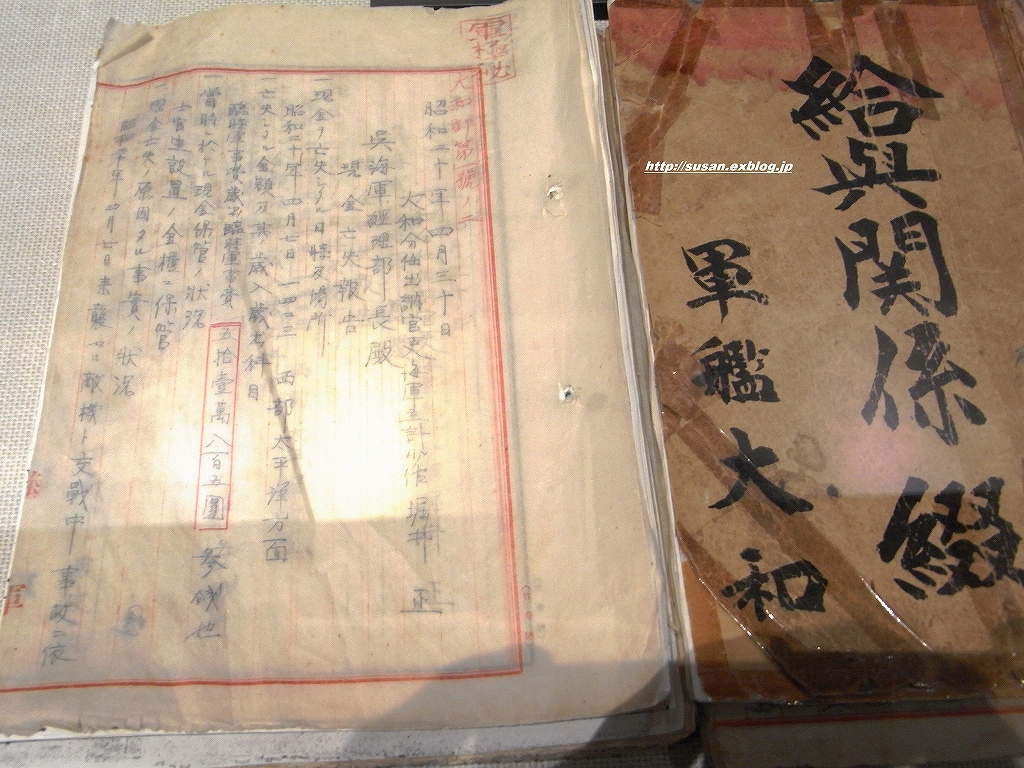 給與関係綴
軍艦大和
http://susan.exblog.jp
軍極秘
昭和二十年四月三十日
大和分任出納官吏海軍主計少佐堀井正
呉海軍經理部長殿
現金亡失報告
一現金ヲ亡失シタル日時及場所
昭和二十年四月七日一四二三
一亡失シタル金額及其ノ歳入歳出科目
臨時軍事費歳出臨時軍事費
五拾壹萬八百五圓
錢也
一當時ニ於ケル現金保管ノ状況
設置ノ金櫃ニ保管
一現金亡失ノ原因タル事實ノ状況
昭和二十年四月七日来襲セル敵機ト交戰中